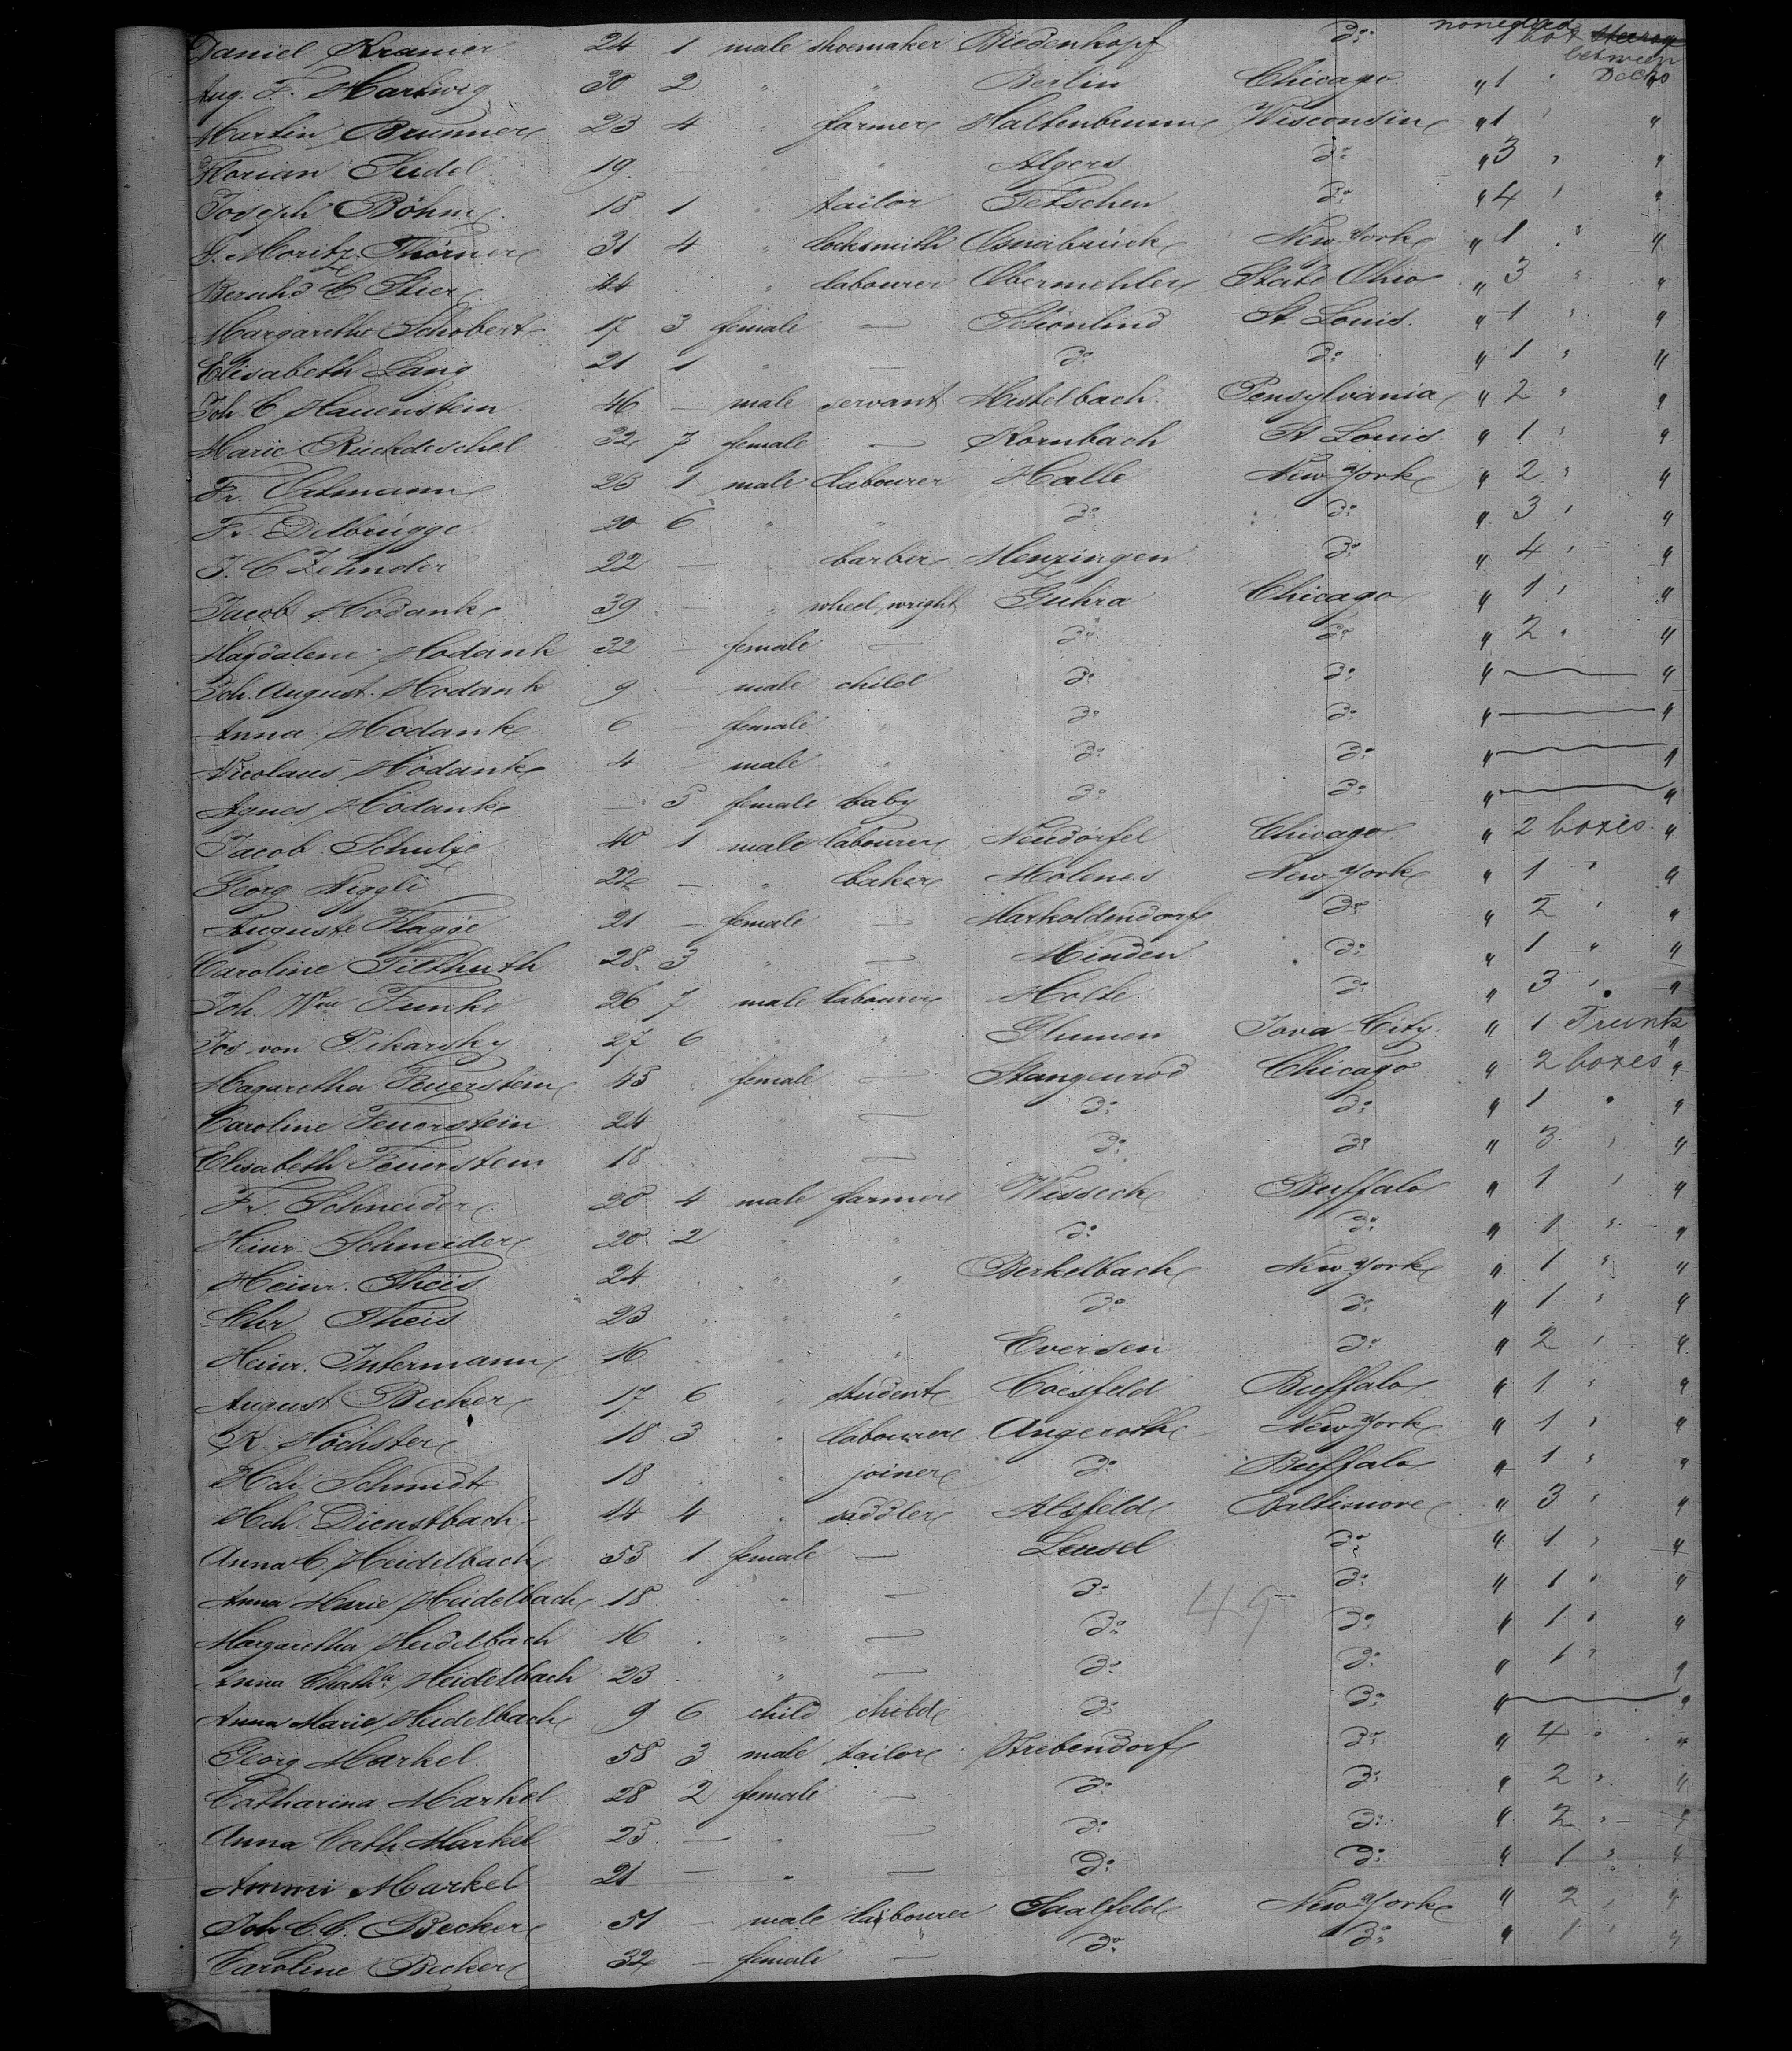 Daniel Kramer 24 1 male shoemaker Biedenkopf do none died 1 box between Decks
Aug. F. Hartwig 30 2 " " Berlin Chicago " 1 " "
Martin Brunner 23 4 " farmer Haltenbrunn Wisconsin " 1 " "
Florian Seidel 19 " " Algers do " 3 " "
Joseph Böhm 18 1 " tailor Tetschen do " 4 " "
G. Moritz Thörner 31 4 " locksmith Osnabrück New-York " 1 " "
Bernhd C Stier 44 " " labourer Obermehler State Ohio " 3 " "
Margarethe Schobert 17 3 female — Schönlind St. Louis. " 1 " "
Elisabeth Lang 21 1 " — do do " 1 " "
Joh. C Hauenstein 46 — male servant Mistelbach Pensylvania " 2 " "
Marie Rückdeschel 32 7 female — Kornbach St Louis " 1 " "
Fr. Ortmann 23 1 male labourer Halle New-York " 2 " "
Fr. Delbrügge 20 6 " " do do " 3 " "
J. C Zehnder 22 — " barber Menzingen do " 4 " "
Jacob Hodank 39 — " wheel wright Guhra Chicago " 1 " "
Magdalene Hodank 32 — female — do do " 2 " "
Joh. August. Hodank 9 — male child do do " — "
Anna Hodank 6 — female " do do " — "
Nicolaus Hodank 4 — male " do do " — "
Agnes Hodank — 3 female baby do do " — "
Jacob Schulze 40 1 male labourer Neudörfel Chicago " 2 boxes "
Georg Niggli 22 — " baker Molenes New-York " 1 " "
Auguste Flagge 21 — female — Markoldendorf do " 2 " "
Caroline Tiethuth 28 3 " — Minden do " 1 " "
Joh. Wm Funke 26 7 male labourer Holte do " 3 " "
Jos von Pikarsky 27 6 " " Glumen Iova-City " 1 Trunk "
Magaretha Feuerstein 43 " female — Stangenrod Chicago " 2 boxes "
Caroline Feuerstein 24 " " — do do " 1 " "
Elisabeth Feuerstein 18 " " — do do " 3 " "
Fr. Schneider 20 4 male farmer Wisseck Buffalo " 1 " "
Heinr. Schneider 20 2 " " do do " 1 " "
Heinr. Theis 24 " " " Berkelbach New-York " 1 " "
Chr Theis 23 " " " do do " 1 " "
Heinr. Intermann 16 " " " Eversen do " 2 " "
August Becker 17 6 " student Coesfeld Buffalo " 1 " "
K. Höchster 18 3 " labourer Angeroth New-York " 1 " "
Hch. Schmidt 18 " " joiner do Buffalo " 1 " "
Hch. Dienstbach 14 4 " saddler Alsfeld Baltimore " 3 " "
Anna C. Heidelbach 53 1 female — Leusel do " 1 " "
Anna Marie Heidelbach 18 " " — do do " 1 " "
49
Margaretha Heidelbach 16 " " — do do " 1 " "
Anna Heidelbach 23 " " — do do " 1 " "
Anna Marie Heidelbach 9 6 child child do do " — "
Georg Markel 58 3 male tailor Strebendorf do " 4 " "
Catharina Markel 28 2 female — do do " 2 " "
Anna Cath Markel 25 — " — do do " 2 " "
Ammi Markel 21 — " — do do " 1 " "
Joh. C. C. Becker 51 — male labourer Saalfeld New-York " 2 " "
Caroline Becker 32 — female — do do " 1 " "